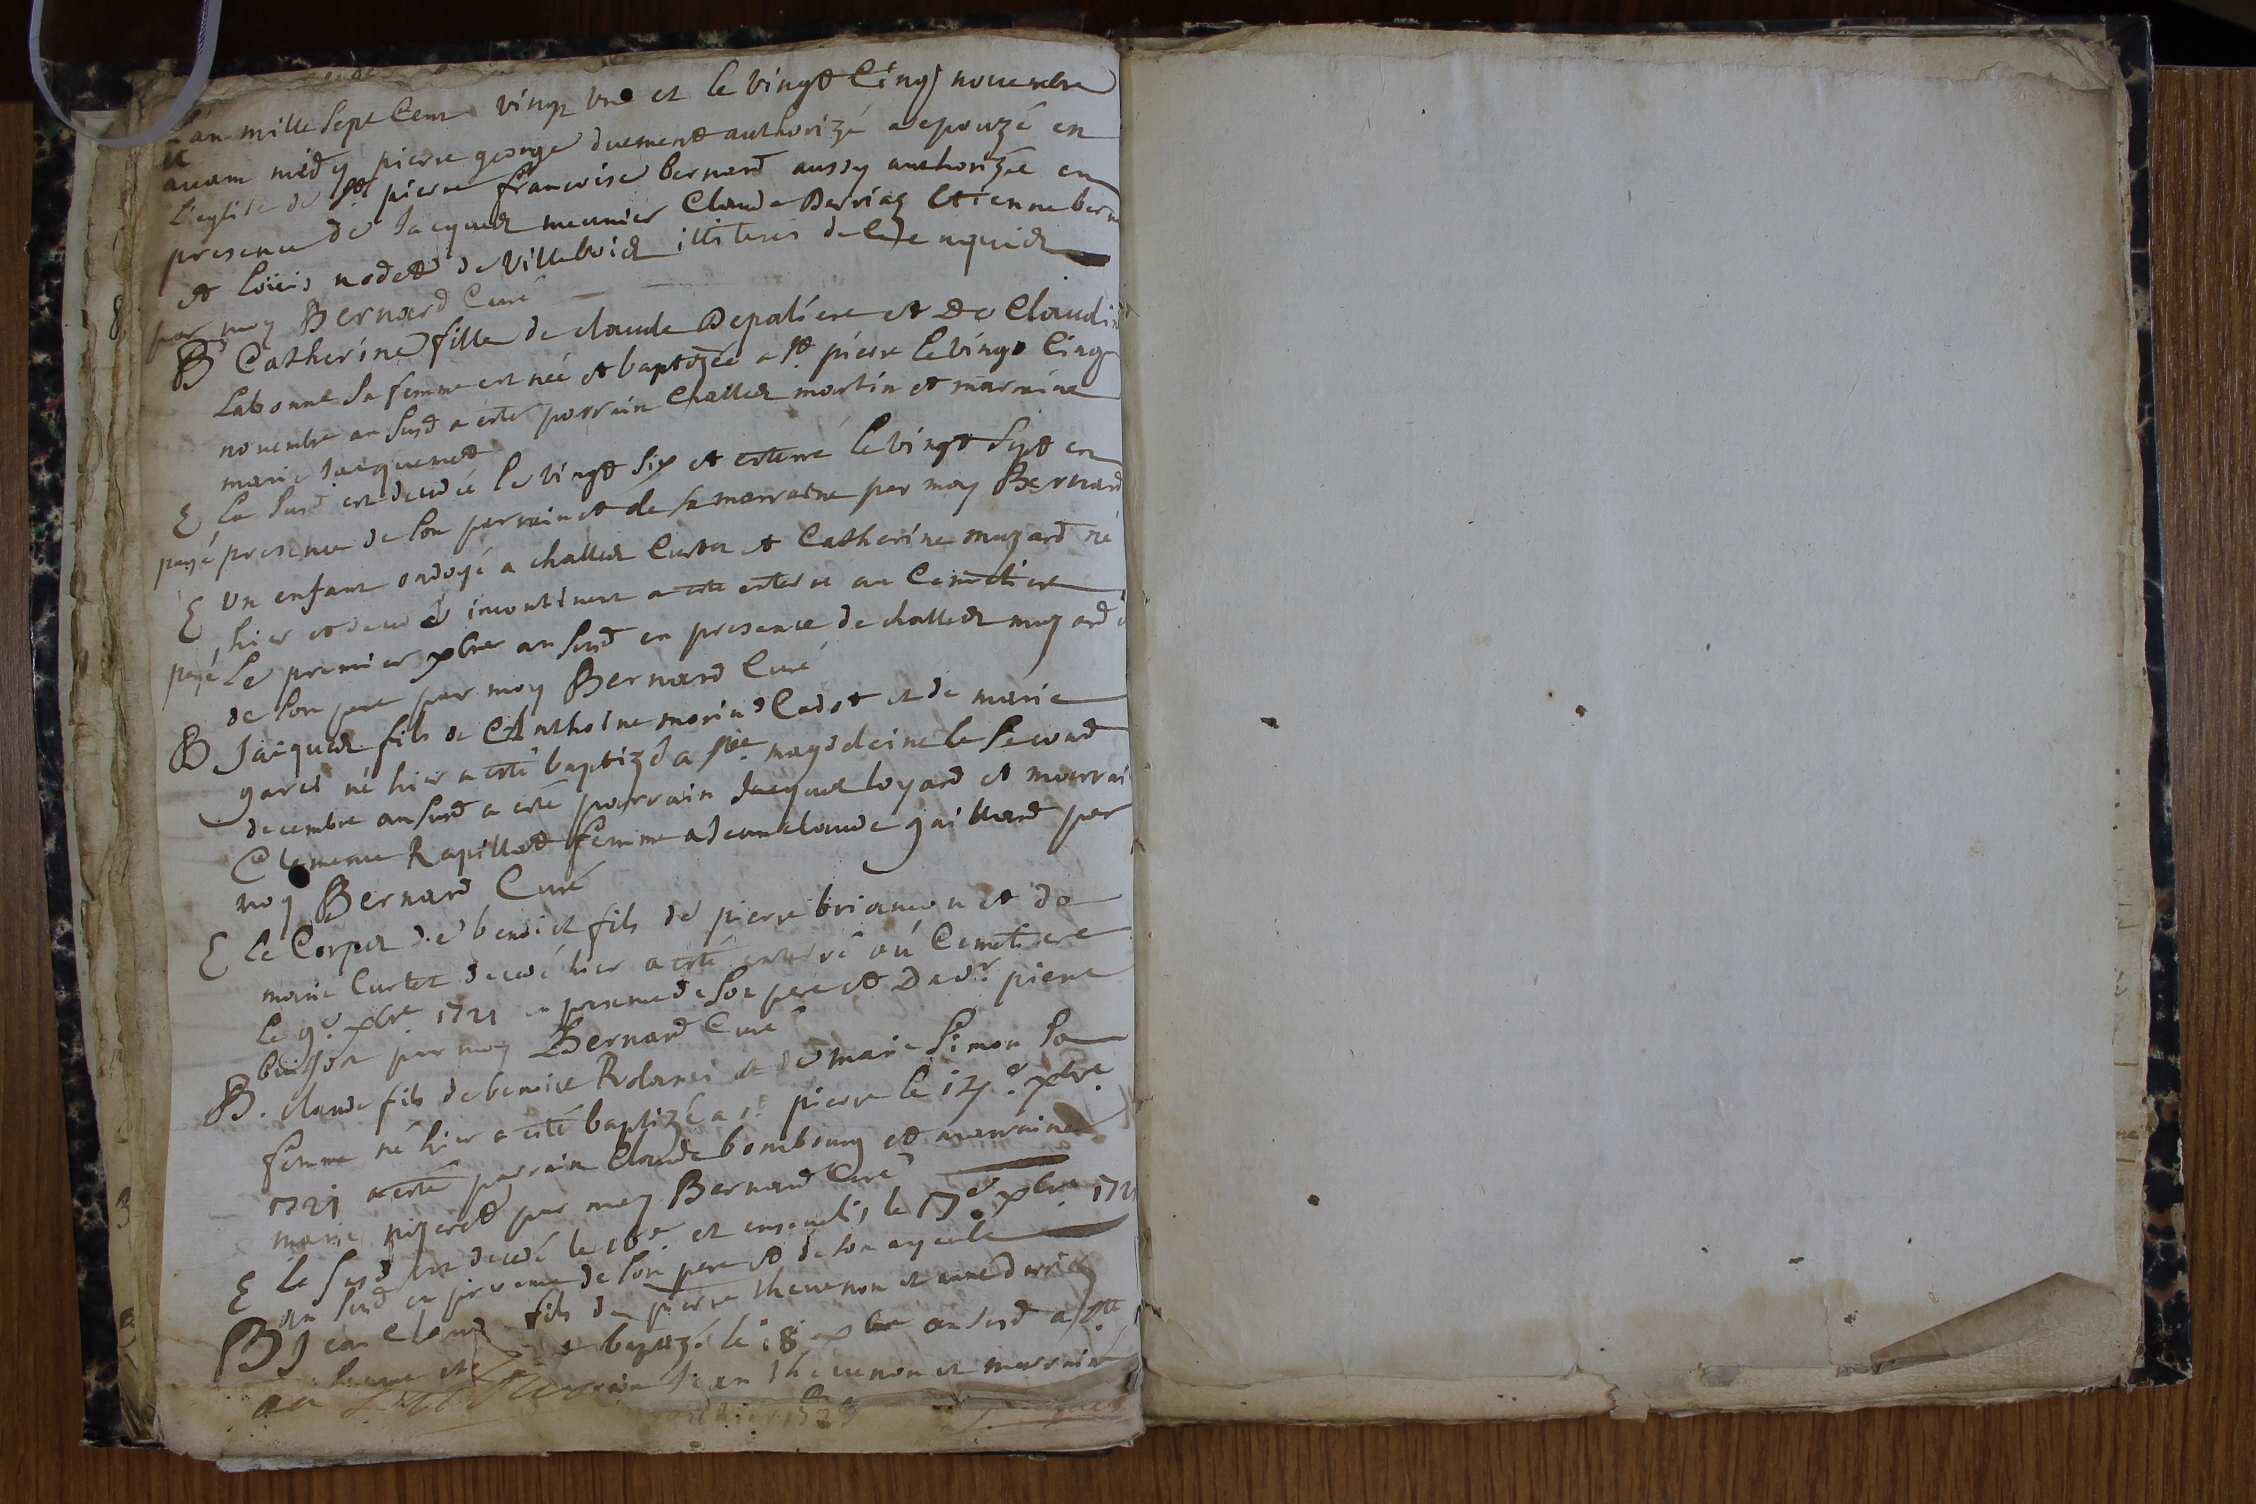 L'an mille sept Cent vingt vn et le vingt Cinq novembre
avant midy pierre george duement authorizé a epouzé en
l'eglise de St pierre francoise bernard aussy authorizée en
presence de Jacques meunier Claude Derriaz Etienne bern
et Loüis nodet de villebois illiteres de ce enquis
par moy Bernard Curé
B Catherine fille de claude Depaliere et De Claudine
Labonne sa femme est née et baptizée a St. pierre le vingt Cinq
novembre an susd a esté parrain Challes martin et marraine
marie Jacquemet
E La susd est decedée le vingt six et enterré le vingt sept en
payé presence de son parrain et de sa marraine par moy Bernard
E Un enfant ondoyé a challes Curtet et Catherine muzard né
hier et decedé incontinent a esté enterré au Cemetiere
payé Le premier xbre an susd en presence de challes muzard et
de son pere par moy Bernard Curé
B Jacques fils de Anthoine morin Cadet et de marie
garel né hier a esté baptizé a Ste. magdeleine le second
decembre an susd a esté parrain Jacques loyard et marrai
Clemence Rapillet femme a Jean claude gaillard par
moy Bernard Curé
E Le Corps de benoit fils de pierre briancon et de
marie Curtet decedé hier a esté enterré au Cemetiere
le 9e. xbre. 1721 en presence de son pere et De sr. pierre
par moy Bernard Curé
B. claude fils de benoit Rolarei et de marie Simon sa
femme né hier a esté baptizé a St pierre le 14e. xbre.
1721 a esté parrain Claude bombourg et marraine
marie pizeret par moy Bernard Curé
E Le susd est decedé le 16e. et enseveli le 17e xbre 1721
an susd en presence de son pere et de son ayeule
B Jean claude fils de pierre thevenon et anne derriaz
sa femme et baptizé le 18 xbre an susd a Ste
parrain Jean thevenon et marraine